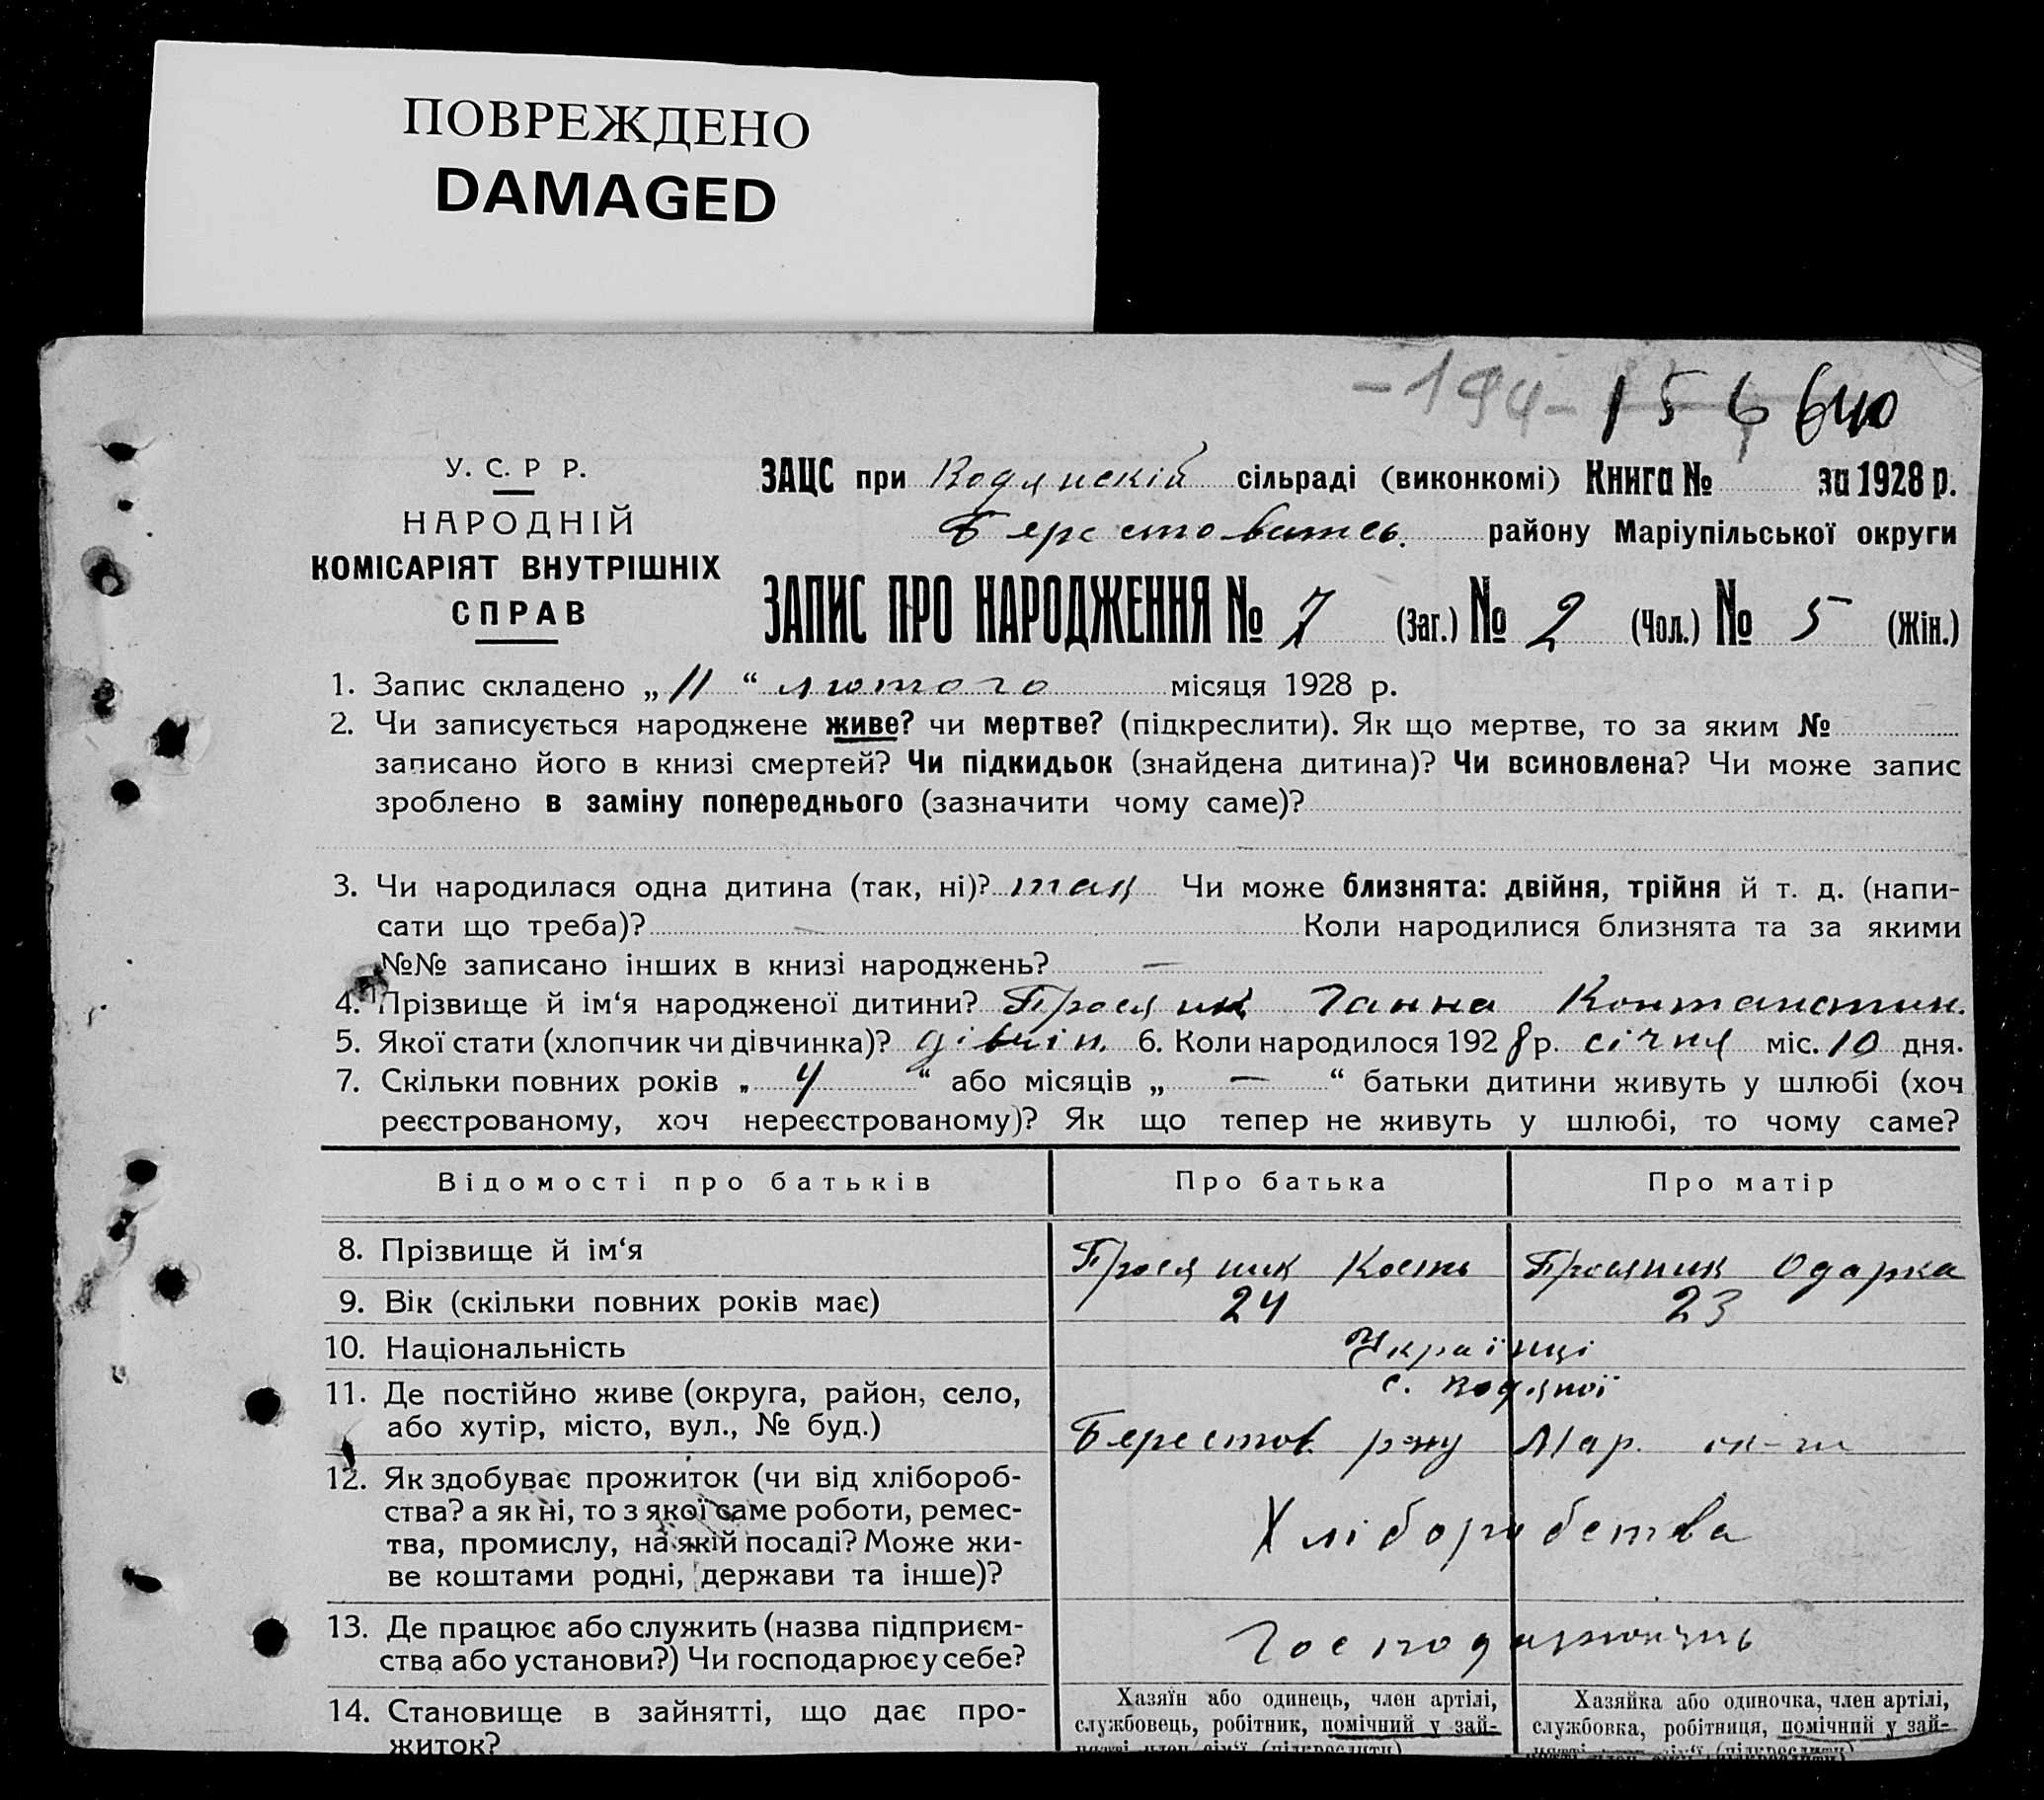 ПОВРЕЖДЕНО
DAMAGED
-194- 640
У. С. Р Р.
НАРОДНІЙ
КОМІСАРІЯТ ВНУТРІШНІХ
СПРАВ
ЗАЦС при Водянскій сільраді (виконкомі) Книга № за 1928 р.
району Маріупільської округи
ЗАПИС ПРО НАРОДЖЕННЯ № 7 (Заг.) № 2 (Чол.) № 5 (Жін.)
1. Запис складено „ 11 “ лютого місяця 1928 р.
2. Чи записується народжене живе? чи мертве? (підкреслити). Як що мертве, то за яким №
записано його в книзі смертей? Чи підкидьок (знайдена дитина)? Чи всиновлена? Чи може запис
зроблено в заміну попереднього (зазначити чому саме)?
3. Чи народилася одна дитина (так, ні)? так Чи може близнята: двійня, трійня й т. д. (напи-
сати що треба)? Коли народилися близнята та за якими
№№ записано інших в книзі народжень? —
4. Прізвище й ім‘я народженої дитини? Просяник Ганна Контанстин.
5. Якої стати (хлопчик чи дівчинка)? дівчін. 6. Коли народилося 1928 р. січня міс. 10 дня.
7. Скільки повних років „ 4 “ або місяців „ — “ батьки дитини живуть у шлюбі (хоч
реєстрованому, хоч нереєстрованому)? Як що тепер не живуть у шлюбі, то чому саме?
Відомості про батьків Про батька Про матір
8. Прізвище й ім‘я Просяник Кость Просяник Одарка
9. Вік (скільки повних років має) 24 23
10. Національність Українці
11. Де постійно живе (округа, район, село, с. Водяної
або хутір, місто, вул., № буд.) Берестов. р-ну Мар. ок-ги
12. Як здобуває прожиток (чи від хлібороб-
ства? а як ні, то з якої саме роботи, ремес-
тва, промислу, на якій посаді? Може жи-
ве коштами родні, держави та інше)? Хліборобства
13. Де працює або служить (назва підприєм-
ства або установи?) Чи господарює у себе? Господарюють
14. Становище в зайнятті, що дає про-
житок?
Хазяїн або одинець, член артілі,
службовець, робітник, помічний у зай-
нятті член сім‘ї (підкреслити)
Хазяйка або одиночка, член артілі,
службовка, робітниця, помічний у зай-
нятті член сім‘ї (підкреслити)